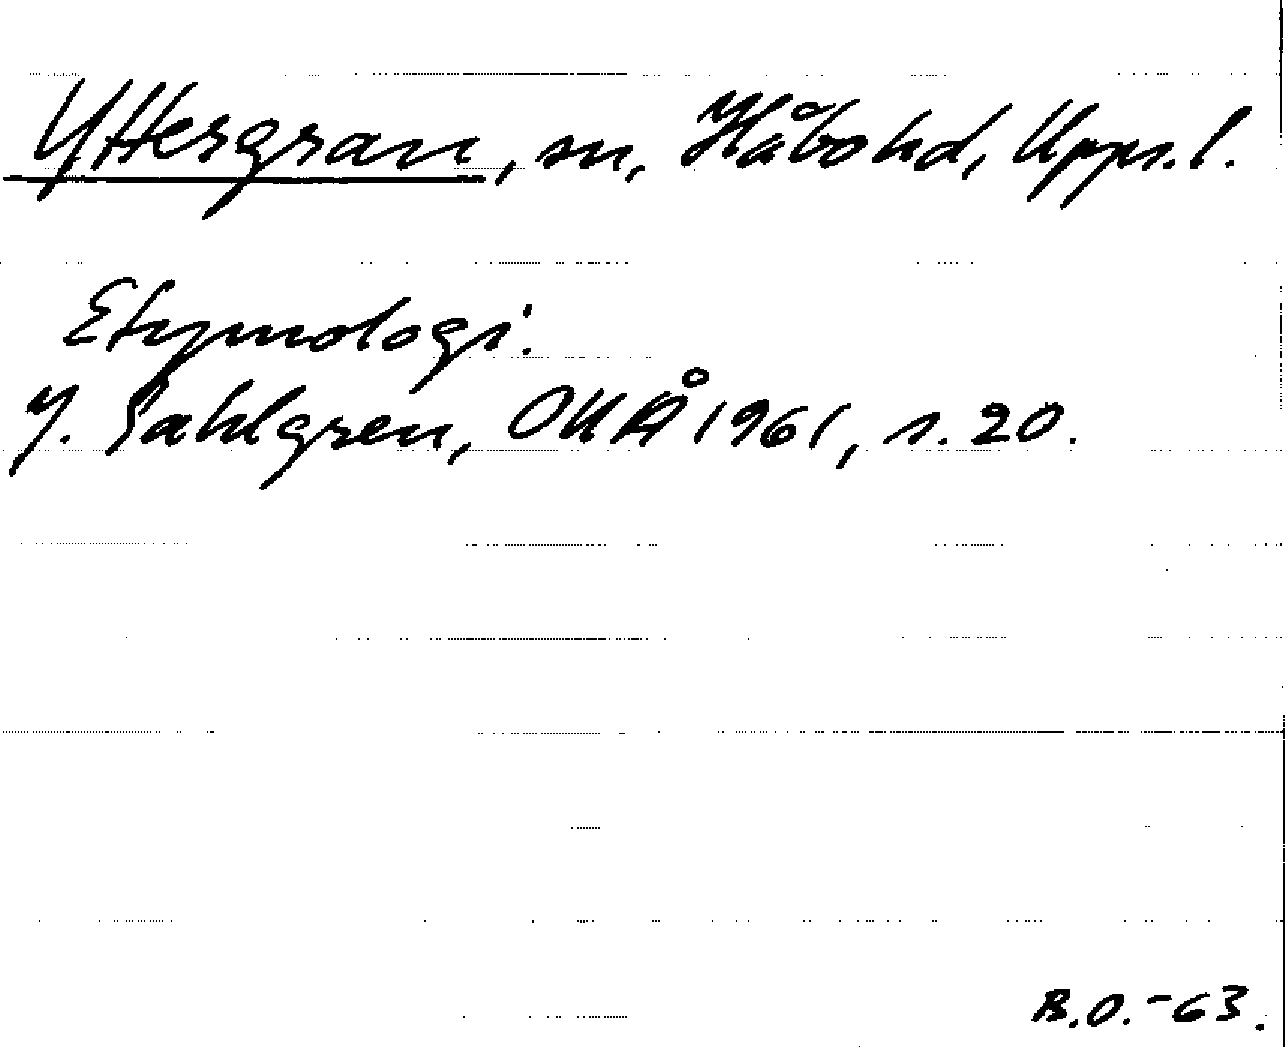 Yttergran, sn, Håbo hd, Upps. l.
Etymologi.
J. Sahlgren, OUÅ 1961, s. 20.
B.O. -63.